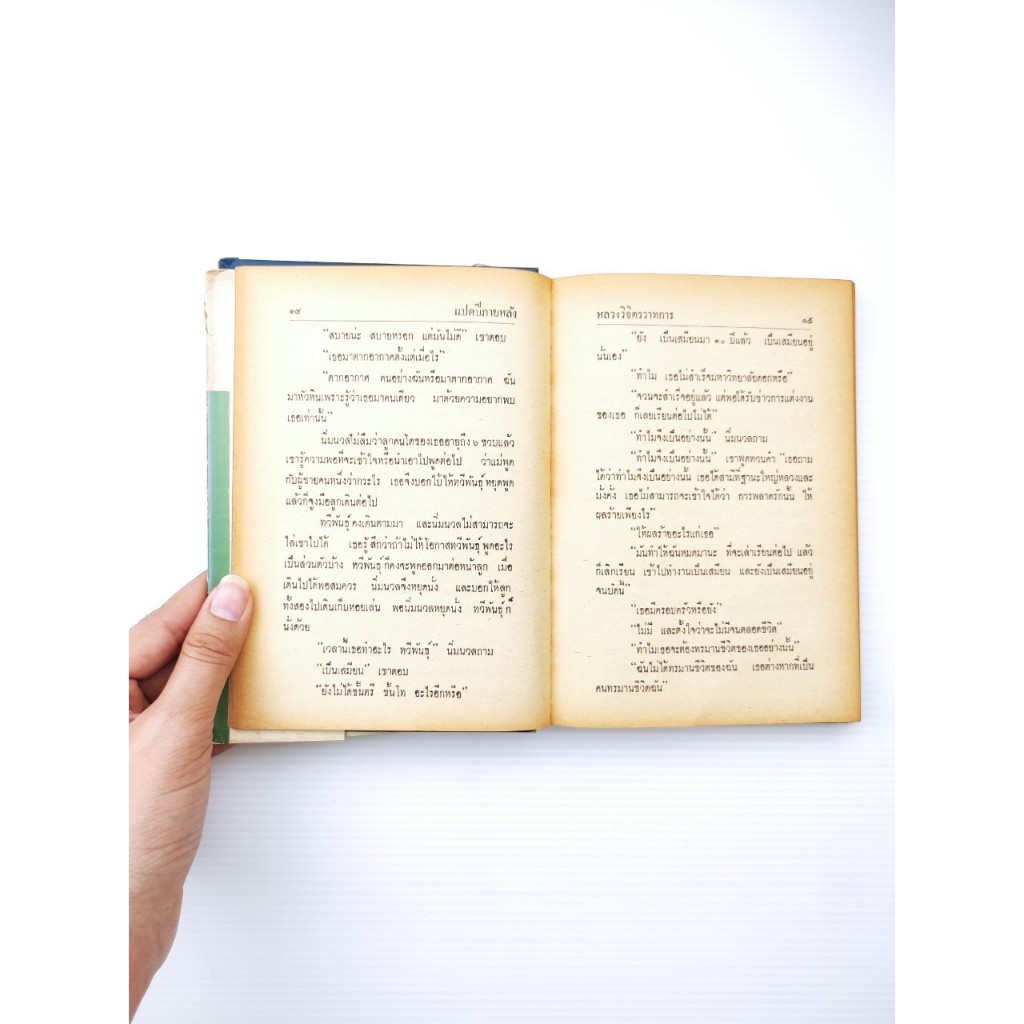 ๑๔ แปดปีภายหลัง
"สบายน่ะ สบายหรอก แต่มันไม่ดี" เขาตอบ
"เธอมาตากอากาศตั้งแต่เมื่อไร"
"ตากอากาศ คนอย่างฉันหรือมาตากอากาศ ฉัน
มาหัวหินเพราะรู้ว่าเธอมาคนเดียว มาด้วยความอยากพบ
เธอเท่านั้น"
นิ่มนวลไม่ลืมว่าลูกคนโตของเธออายุถึง ๖ ขวบแล้ว
เขารู้ความพอที่จะเข้าใจหรือนำเอาไปพูดต่อไป ว่าแม่พูด
กับผู้ชายคนหนึ่งว่ากระไร เธอจึงบอกใบ้ให้ทวีพันธุ์หยุดพูด
แล้วก็จูงมือลูกเดินต่อไป
ทวีพันธุ์คงเดินตามมา และนิ่มนวลไม่สามารถจะ
ไล่เขาไปได้ เธอรู้สึกว่าถ้าไม่ให้โอกาสทวีพันธุ์พูดอะไร
เป็นส่วนตัวบ้าง ทวีพันธุ์ก็คงจะพูดออกมาต่อหน้าลูก เมื่อ
เดินไปได้พอสมควร นิ่มนวลจึงหยุดนั่ง และบอกให้ลูก
ทั้งสองไปเดินเก็บหอยเล่น พอนิ่มนวลหยุดนั่ง ทวีพันธุ์ก็
นั่งด้วย
"เวลานี้เธอทำอะไร ทวีพันธุ์" นิ่มนวลถาม
"เป็นเสมียน" เขาตอบ
"ยังไม่ได้ชั้นตรี ชั้นโท อะไรอีกหรือ"
หลวงวิจิตรวาทการ ๑๕
"ยัง เป็นเสมียนมา ๑๐ ปีแล้ว เป็นเสมียนอยู่
นั่นเอง"
"ทำไม เธอไม่สำเร็จมหาวิทยาลัยดอกหรือ"
"จวนจะสำเร็จอยู่แล้ว แต่พอได้รับข่าวการแต่งงาน
ของเธอ ก็เลยเรียนต่อไปไม่ได้"
"ทำไมจึงเป็นอย่างนั้น" นิ่มนวลถาม
"ทำไมจึงเป็นอย่างนั้น" เขาพูดทวนคำ "เธอถาม
ได้ว่าทำไมจึงเป็นอย่างนั้น เธอได้สามีที่ฐานะใหญ่หลวงและ
มั่งคั่ง เธอไม่สามารถจะเข้าใจได้ว่า การพลาดรักนั้น ให้
ผลร้ายเพียงไร"
"ให้ผลร้ายอะไรแก่เธอ"
"มันทำให้ฉันหมดมานะ ที่จะเล่าเรียนต่อไป แล้ว
ก็เลิกเรียน เข้าไปทำงานเป็นเสมียน และยังเป็นเสมียนอยู่
จนบัดนี้"
"เธอมีครอบครัวหรือยัง"
"ไม่มี และตั้งใจว่าจะไม่มีจนตลอดชีวิต"
"ทำไมเธอจะต้องทรมานชีวิตของเธออย่างนั้น"
"ฉันไม่ได้ทรมานชีวิตของฉัน เธอต่างหากที่เป็น
คนทรมานชีวิตฉัน"